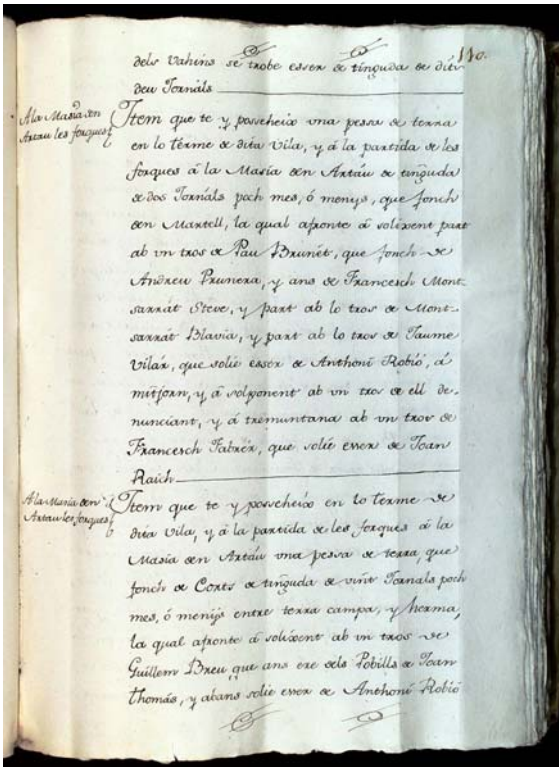 110.
dels Vahins se trobe esser de tinguda de dits
deu Jornals
A la Masia den
Artau les forques
Item que te y posseheix una pessa de terra
en lo terme de dita Vila, y á la partida de les
forques á la Masia den Artáu de tinguda
de dos Jornáls poch mes, ó menys, que fonch
den Martell, la qual afronte á solixent part
ab un tros de Pau Brunét, que fonch de
Andreu Prunera, y ans de Francesch Mont-
sarrát Steve, y part ab lo tros de Mont-
sarrát Blavia, y part ab lo tros de Jaume
Vilár, que solie esser de Anthoni Robió, á
mitjorn, y á solponent ab un tros de ell de-
nunciant, y á tremuntana ab un tros de
Francesch Fabrér, que solie esser de Joan
Raich
A la Masia den
Artau les forques
Item que te y posseheix en lo terme de
dita Vila, y á la partida de les forques á la
Masia den Artáu una pessa de terra, que
fonch de Corts de tinguda de vint Jornals poch
mes, ó menys entre terra campa, y herma,
la qual afronte á solixent ab un tros de
Guillem Breu que ans ere dels Pobills de Joan
Thomás, y abans solie esser de Anthoni Robió